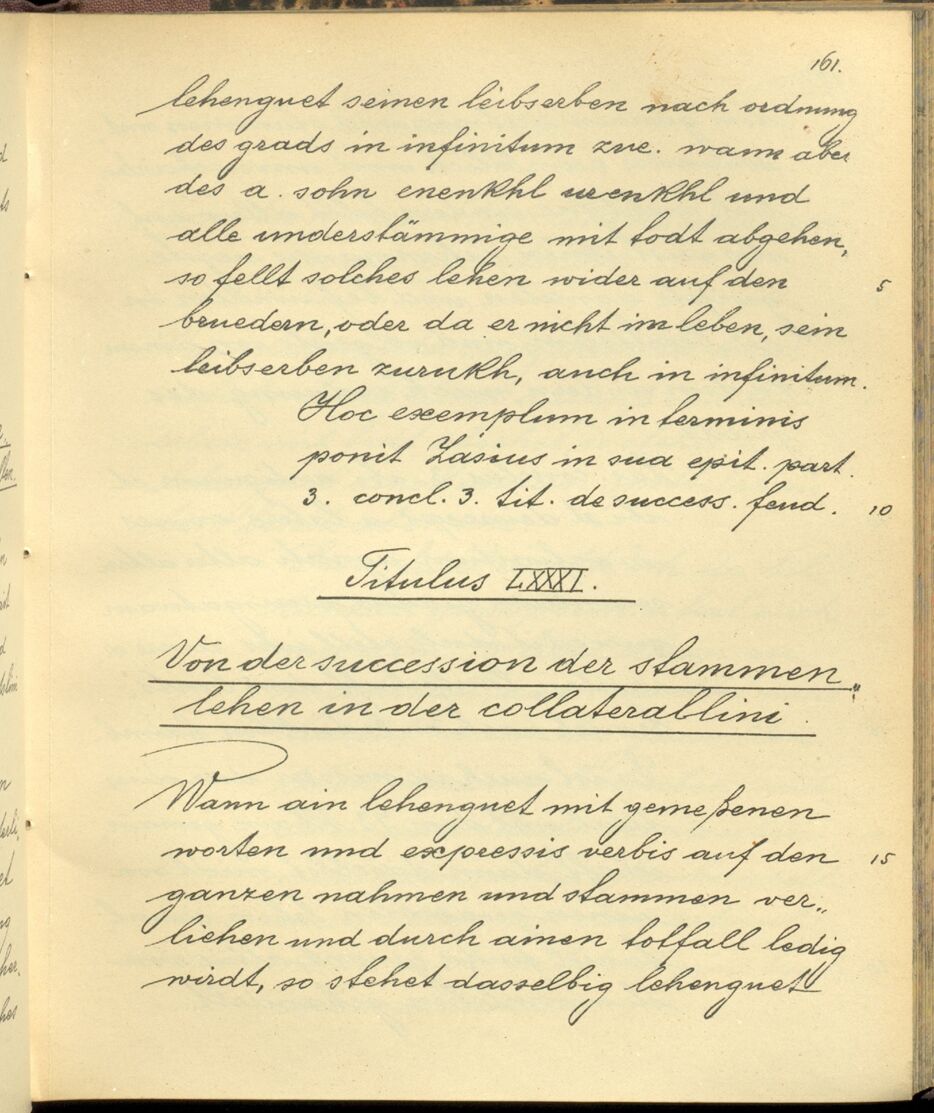 161.
lehenguet seinen leibserben nach ordnung
des grads in infinitum zue. wann aber
des a. sohn enenkhl urenkhl und
alle understämmige mit todt abgehen,
so fellt solches lehen wider auf den 5
bruedern, oder da er nicht im leben, sein
leibserben zurukh, auch in infinitum.
Hoc exemplum in terminis
ponit Zasius in sua epit. part.
3. concl. 3. tit. de success. feud. 10
Titulus LXXXI.
Von der succession der stammen„
lehen in der collaterallini
Wann ain lehenguet mit gemeßenen
worten und expressis verbis auf den 15
ganzen nahmen und stammen ver„
liehen und durch ainen totfall ledig
wirdt, so stehet dasselbig lehenguet